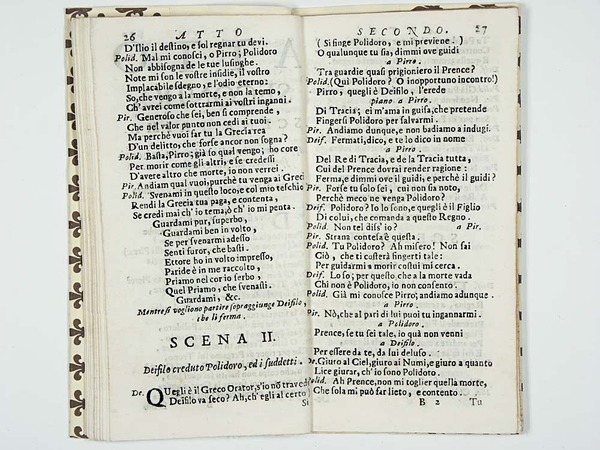 26 ATTO
D'Ilio il destino, e sol regnar tu devi.
Polid. Mal mi conosci, o Pirro; Polidoro
Non abbisogna de le tue lusinghe.
Note mi son le vostre insidie, il vostro
Implacabile sdegno, e l'odio eterno:
So, che vengo a la morte, e non la temo,
Ch'avrei come sottrarmi ai vostri inganni.
Pir. Generoso che sei, ben si comprende,
Che nel valor punto non cedi ai tuoi.
Ma perchè vuoi far tu la Grecia rea
D'un delitto, che forse ancor non sogna?
Polid. Basta, Pirro; già so qual vengo; ho core
Per morir come gli altri, e se credessi
D'avere altro che morte, io non verrei.
Pir. Andiam qual vuoi, purchè tu venga ai Greci
Polid. Svenami in questo loco, e col mio teschio
Rendi la Grecia tua paga, e contenta,
Se credi mai ch'io tema, ò ch'io mi penta.
Guardami pur, superbo,
Guardami ben in volto,
Se per svenarmi adesso
Senti furor, che basti.
Ettore ho in volto impresso,
Paride è in me raccolto,
Priamo nel cor io serbo,
Quel Priamo, che svenasti.
Guardami, &c.
Mentre si vogliono partire sopraggiunge Deifilo,
che li ferma.
SCENA II.
Deifilo creduto Polidoro, ed i suddetti.
De. Quegli è il Greco Orator, s'io nò travedo
Deifilo va seco? Ah, ch'egli al certo
Si
SECONDO. 27
(Si finge Polidoro, e mi previene.)
O qualunque tu sia; dimmi ove guidi
a Pirro.
Tra guardie quasi prigioniero il Prence?
Polid. (Qui Polidoro? O inopportuno incontro!)
Pirro, quegli è Deifilo, l'erede
piano a Pirro.
Di Tracia; ei m'ama in guisa, che pretende
Fingersi Polidoro per salvarmi.
Pir. Andiamo dunque, e non badiamo a indugi.
Deif. Fermati, dico, e te lo dico in nome
a Pirro.
Del Re di Tracia, e de la Tracia tutta,
Cui del Prence dovrai render ragione:
Ferma, e dimmi ove il guidi, e perchè il guidi?
Pir. Forse tu solo sei, cui non sia noto,
Perchè meco ne venga Polidoro?
Deif. Polidoro? Io lo sono, e quegli è il Figlio
Di colui, che comanda a questo Regno.
Polid. Non tel diss'io? a Pir.
Pir. Strana contesa è questa.
Polid. Tu Polidoro? Ah misero! Non sai
Ciò, che ti costerà fingerti tale:
Per guidarmi a morir costui mi cerca.
Deif. Lo so; per questo che a la morte vada
Chi non è Polidoro, io non consento.
Polid. Già mi conosce Pirro; andiamo adunque.
a Pirro.
Pir. Nò, che al par di lui puoi tu ingannarmi.
a Polidoro.
Prence, se tu sei tale, iò quà non venni
a Deifilo.
Per essere da te, da lui deluso.
De. Giuro al Ciel, giuro ai Numi, e giuro a quanto
Lice giurar, ch'io sono Polidoro.
Polid. Ah Prence, non mi toglier quella morte,
Che sola mi può far lieto, e contento.
B 2 Tu